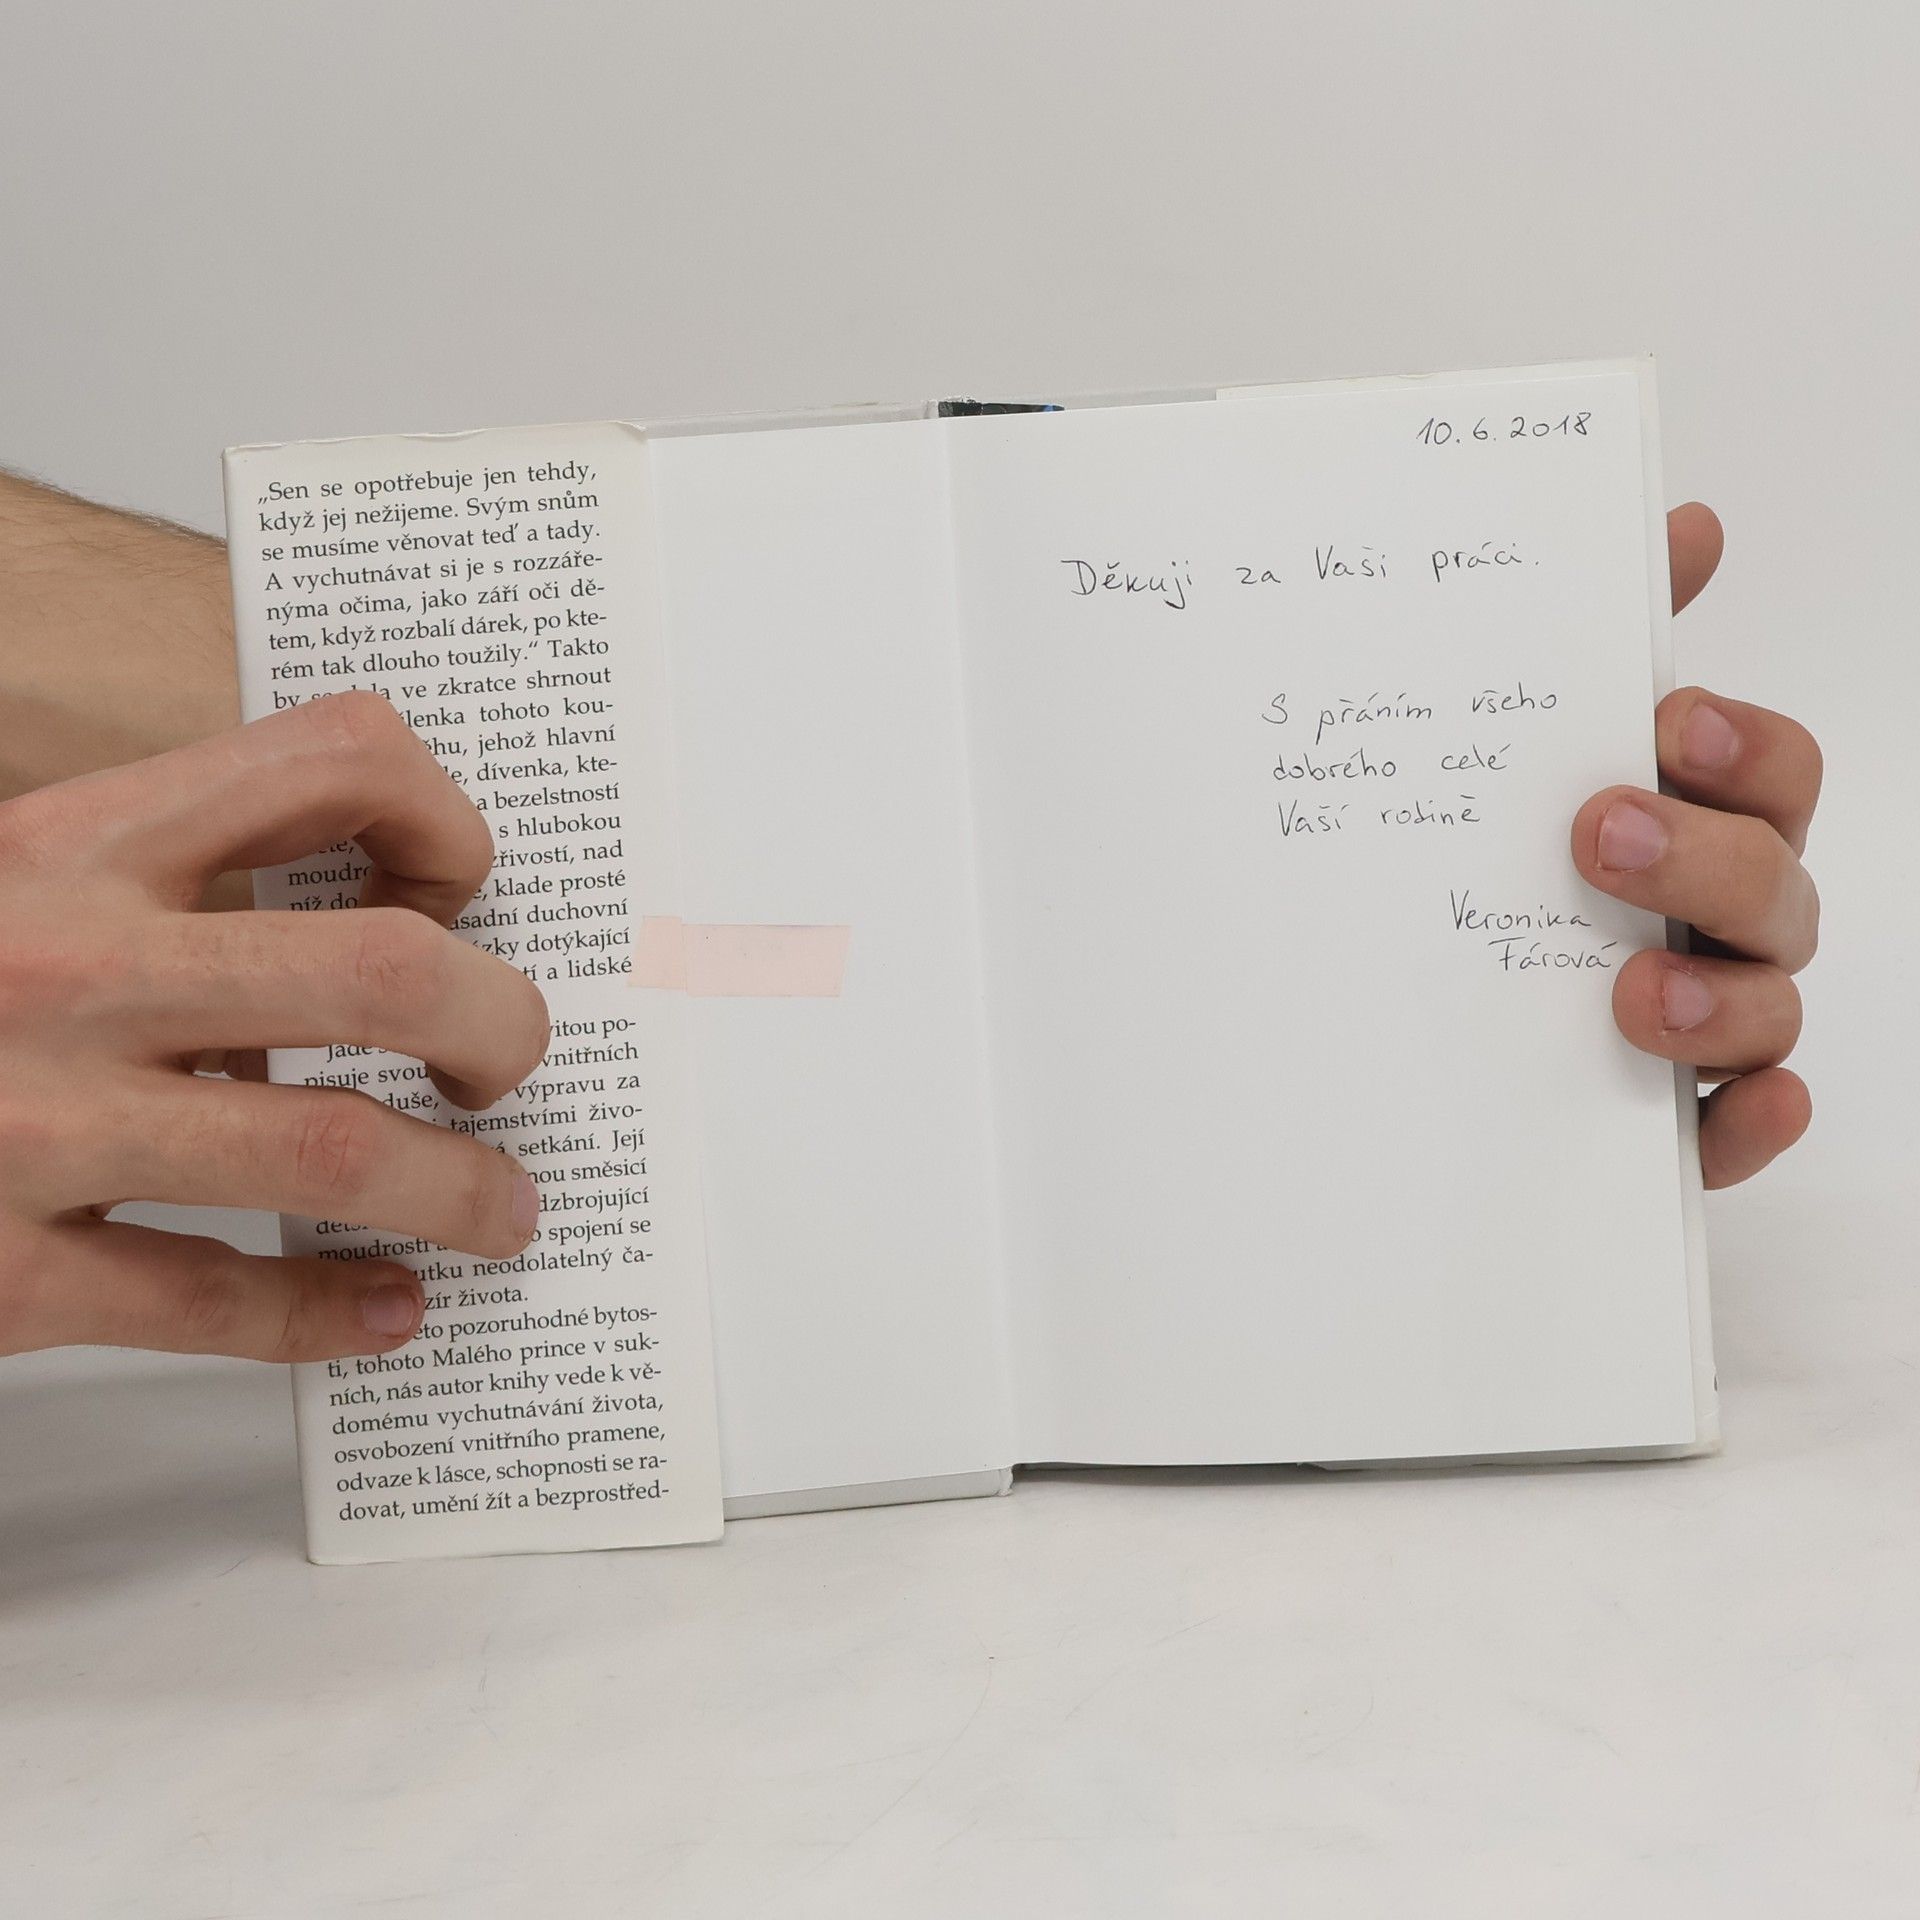 „Sen se opotřebuje jen tehdy,
když jej nežijeme. Svým snům
se musíme věnovat teď a tady.
A vychutnávat si je s rozzáře-
nýma očima, jako září oči dě-
tem, když rozbalí dárek, po kte-
rém tak dlouho toužily.“ Takto
by ve zkratce shrnout
tohoto kou-
jehož hlavní
dívenka, kte-
a bezelstností
s hlubokou
nad
klade prosté
duchovní
dotýkající
a lidské
po-
vnitřních
pisuje svou výpravu za
duše, tajemstvími živo-
setkání. Její
směsicí
spojení se
moudrosti neodolatelný ča-
života.
pozoruhodné bytos-
ti, tohoto Malého prince v suk-
ních, nás autor knihy vede k vě-
domému vychutnávání života,
osvobození vnitřního pramene,
odvaze k lásce, schopnosti se ra-
dovat, umění žít a bezprostřed-
10. 6. 2018
Děkuji za Vaši práci.
S přáním všeho
dobrého celé
Vaší rodině
Veronika
Fárová